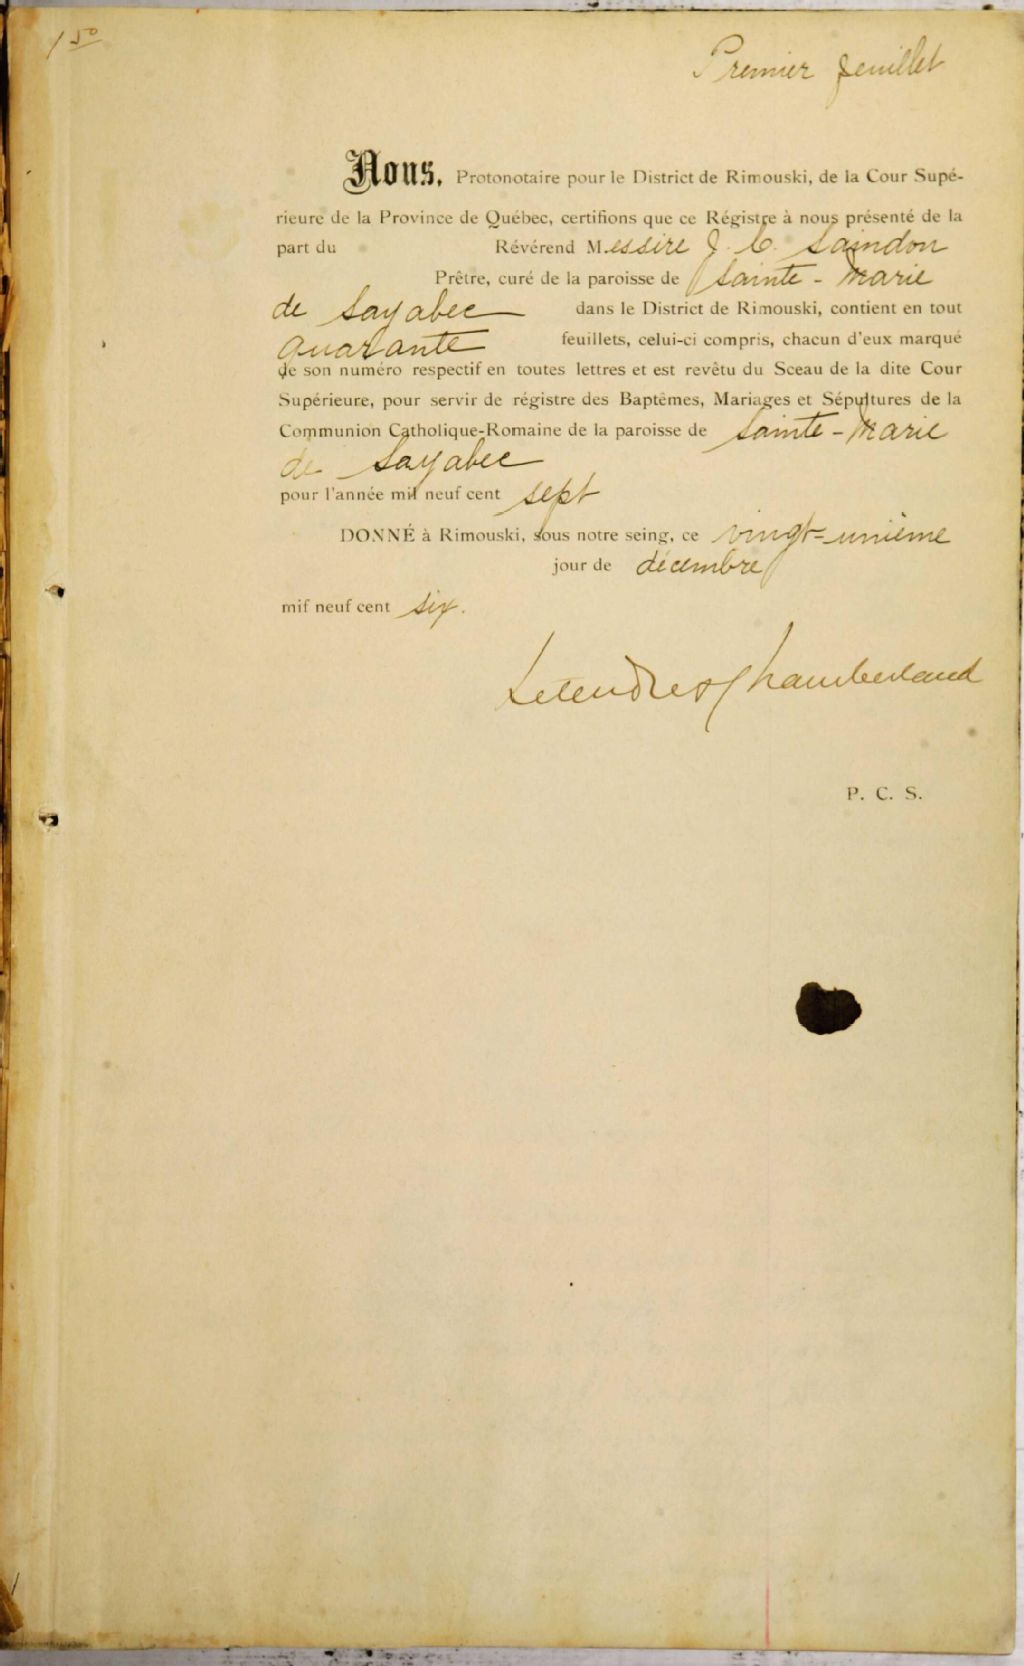 1 50
Premier feuillet
Nous, Protonotaire pour le District de Rimouski, de la Cour Supé-
rieure de la Province de Québec, certifions que ce Régistre à nous présenté de la
part du Révérend Messire J. C. Saindon
Prêtre, curé de la paroisse de Sainte-Marie
de Sayabec dans le District de Rimouski, contient en tout
quarante feuillets, celui-ci compris, chacun d'eux marqué
de son numéro respectif en toutes lettres et est revêtu du Sceau de la dite Cour
Supérieure, pour servir de régistre des Baptêmes, Mariages et Sépultures de la
Communion Catholique-Romaine de la paroisse de Sainte-Marie
de Sayabec
pour l'année mil neuf cent sept
DONNÉ à Rimouski, sous notre seing, ce vingt-unième
jour de décembre
mil neuf cent six.
Letendre & Chamberland
P. C. S.